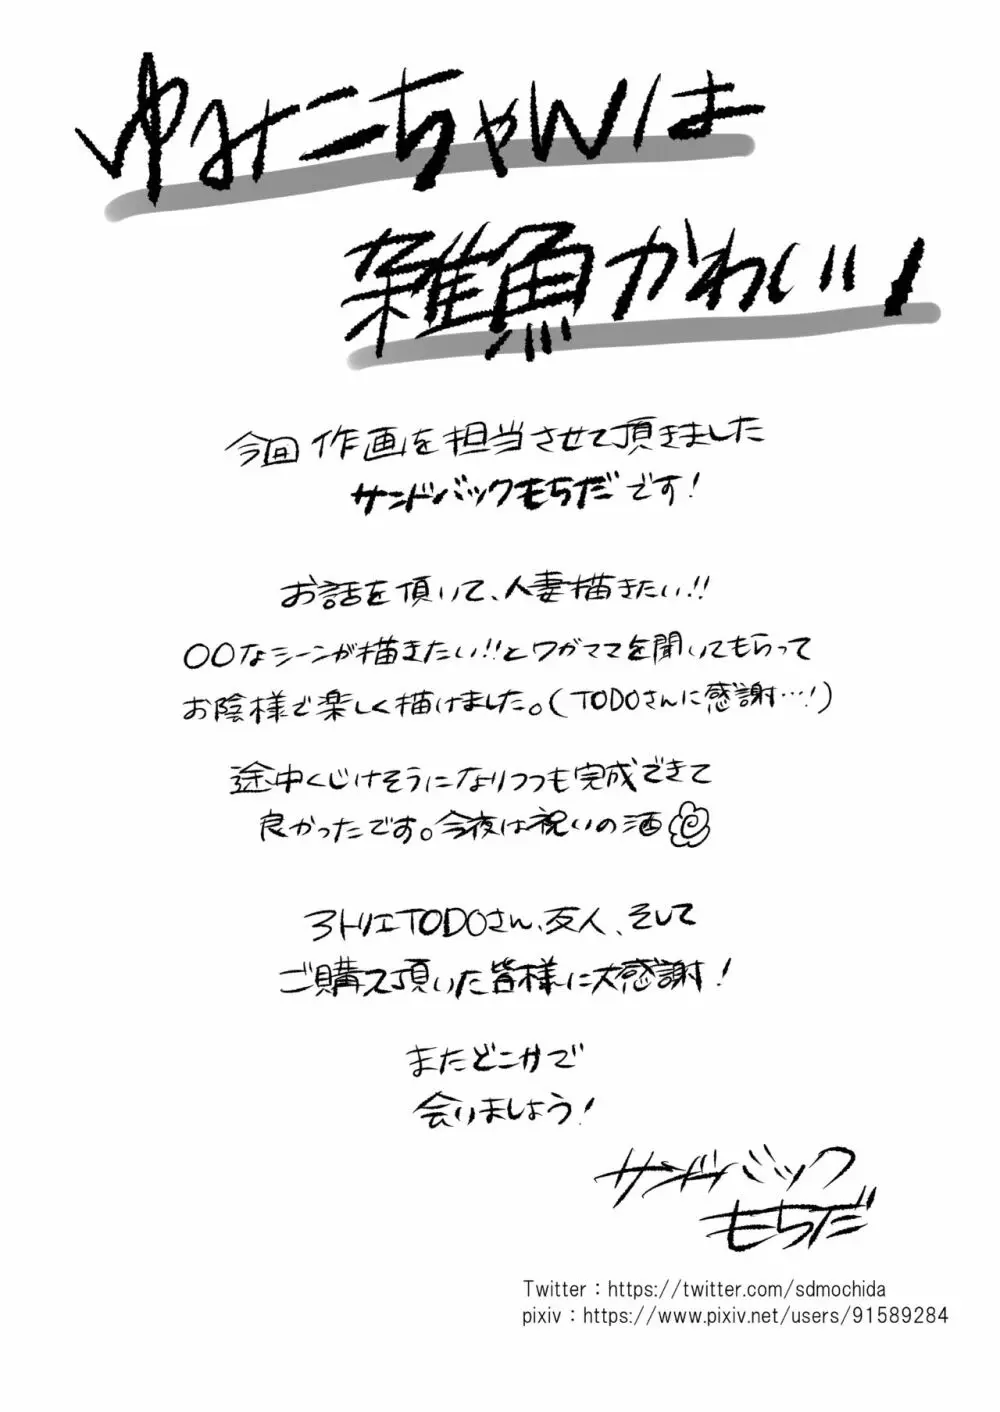 ゆみこちゃんは
雑魚かわいい
今回作画を担当させて頂きました
サンドバックもちだです!
お話を頂いて、人妻描きたい!!
〇〇なシーンが描きたい!!とワガママを聞いてもらって
お陰様で楽しく描けました。(TODOさんに感謝…!)
途中くじけそうになりつつも完成できて
良かったです。今夜は祝いの酒
アトリエTODOさん、友人、そして
ご購入頂いた皆様に大感謝!
またどこかで
会いましょう!
サンドバック
もちだ
Twitter：https://twitter.com/sdmochida
pixiv：https://www.pixiv.net/users/91589284